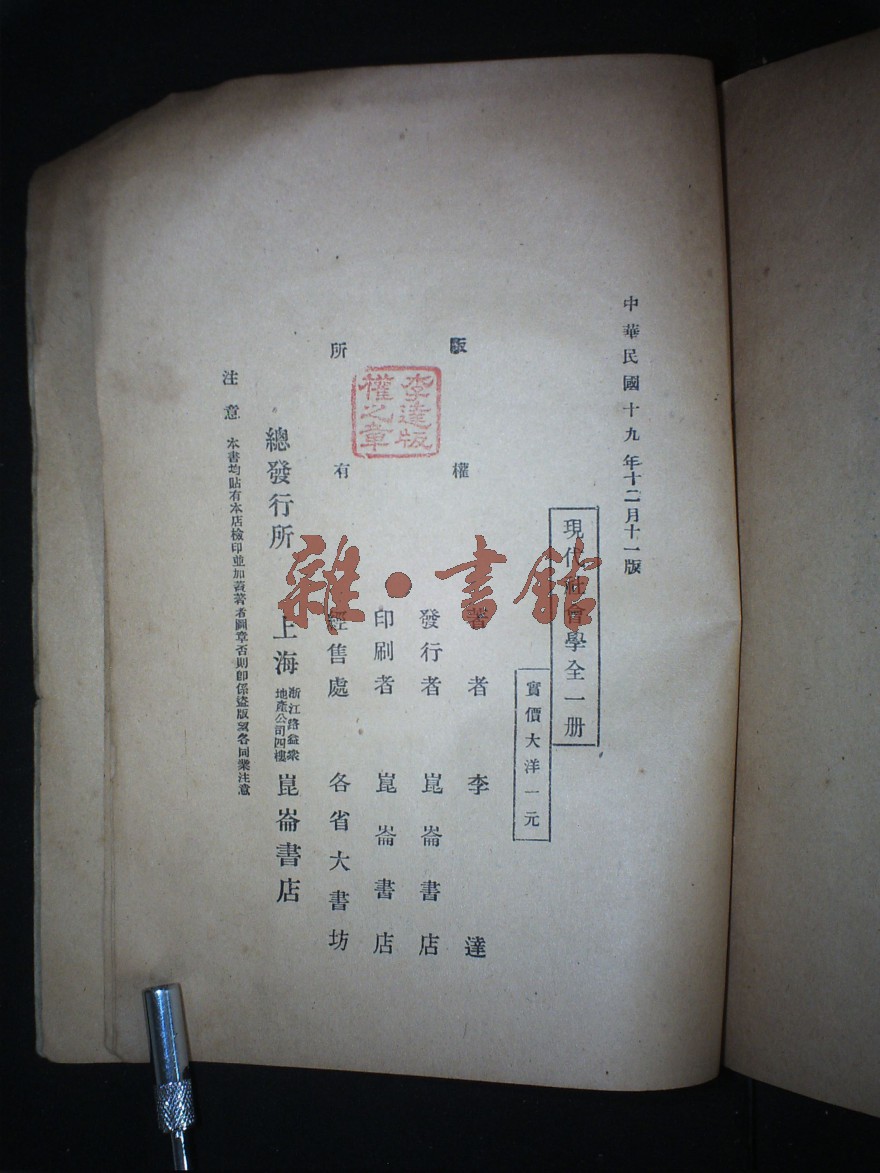 中華民國十九年十二月十一版
現代社會學全一册
實價大洋一元
著者 李達
發行者 崑崙書店
印刷者 崑崙書店
經售處 各省大書坊
版權所有
李達版權之章
總發行所 上海 浙江路益衆地產公司四樓 崑崙書店
注意 本書均貼有本店檢印並加蓋著者圖章否則卽係盜版望各同業注意
雜·書館